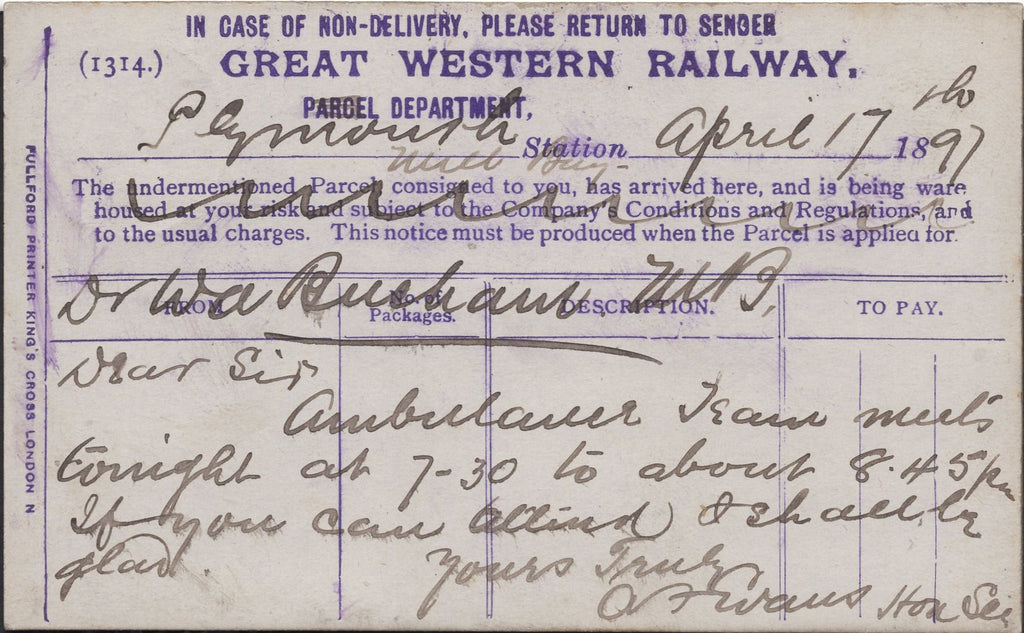 IN CASE OF NON-DELIVERY, PLEASE RETURN TO SENDER
(1314.) GREAT WESTERN RAILWAY.
PARCEL DEPARTMENT,
Plymouth Station April 17th 1897
Mill Bay
The undermentioned Parcel consigned to you, has arrived here, and is being ware
housed at your risk and subject to the Company's Conditions and Regulations, and
to the usual charges. This notice must be produced when the Parcel is applied for.
FROM No. of Packages. DESCRIPTION. TO PAY.
Dr Wa Bushant MB,
Dear Sir
Ambulance Team meets
tonight at 7-30 to about 8.45 pm
If you can attend I shall be
glad.
Yours Truly
Evans Hon Sec
FULLFORD PRINTER KING'S CROSS LONDON N